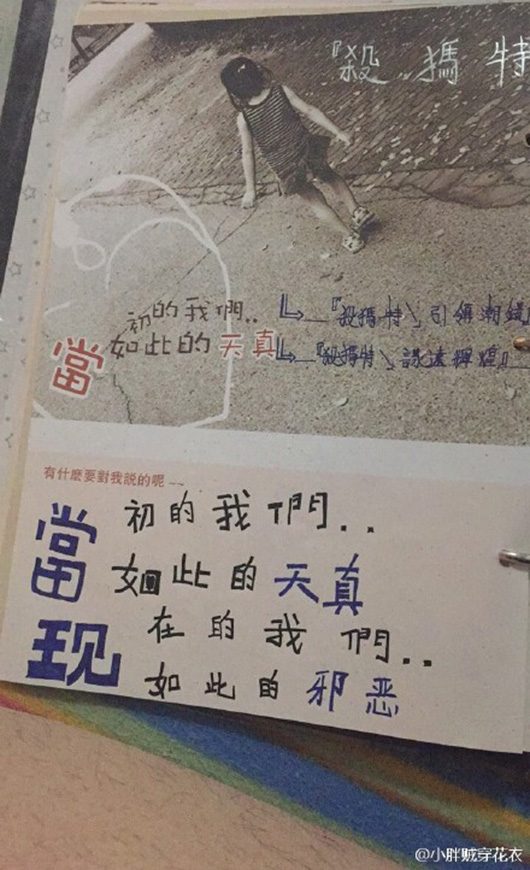 『殺 獁 特
初的我們..
當 如此的天真
『殺獁特』引領潮
『殺獁特』
有什麼要對我說的呢~~
當 初的我們..
如此的天真
现 在的我們..
如此的邪恶
@小胖贼穿花衣